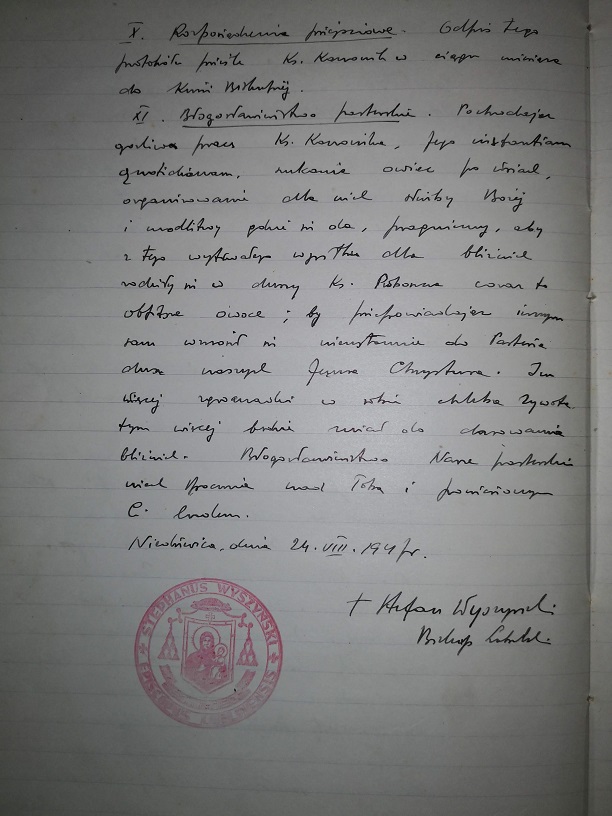 X. Rozporządzenia przejściowe. Odpis tego
protokółu prześle Ks. Kanonik w ciągu miesiąca
do Kurii Biskupiej.
XI. Błogosławieństwo pasterskie. Pochwalając
gorliwą pracę Ks. Kanonika, Jego instantiam
quotidianam, szukanie owiec po wsiach,
organizowanie dla nich służby Bożej
i modlitwy gdzie się da, pragniemy, aby
z tego wytrwałego wysiłku dla bliźnich
rodziły się w duszy Ks. Proboszcza coraz to
obfitsze owoce; by przepowiadając innym
sam wznosił się nieustannie do Pasterza
dusz naszych Jezusa Chrystusa. Im
więcej zgromadzi w sobie chleba żywota,
tym więcej będzie miał do darowania
bliźnich. Błogosławieństwo Nasze pasterskie
niech spocznie nad Tobą i powierzonym
Ci ludem.
dnia 24.VIII.1947 r.
† Stefan Wyszyński
Biskup Lubelski
STEPHANUS WYSZYŃSKI
EPISCOPUS LUBLINENSIS